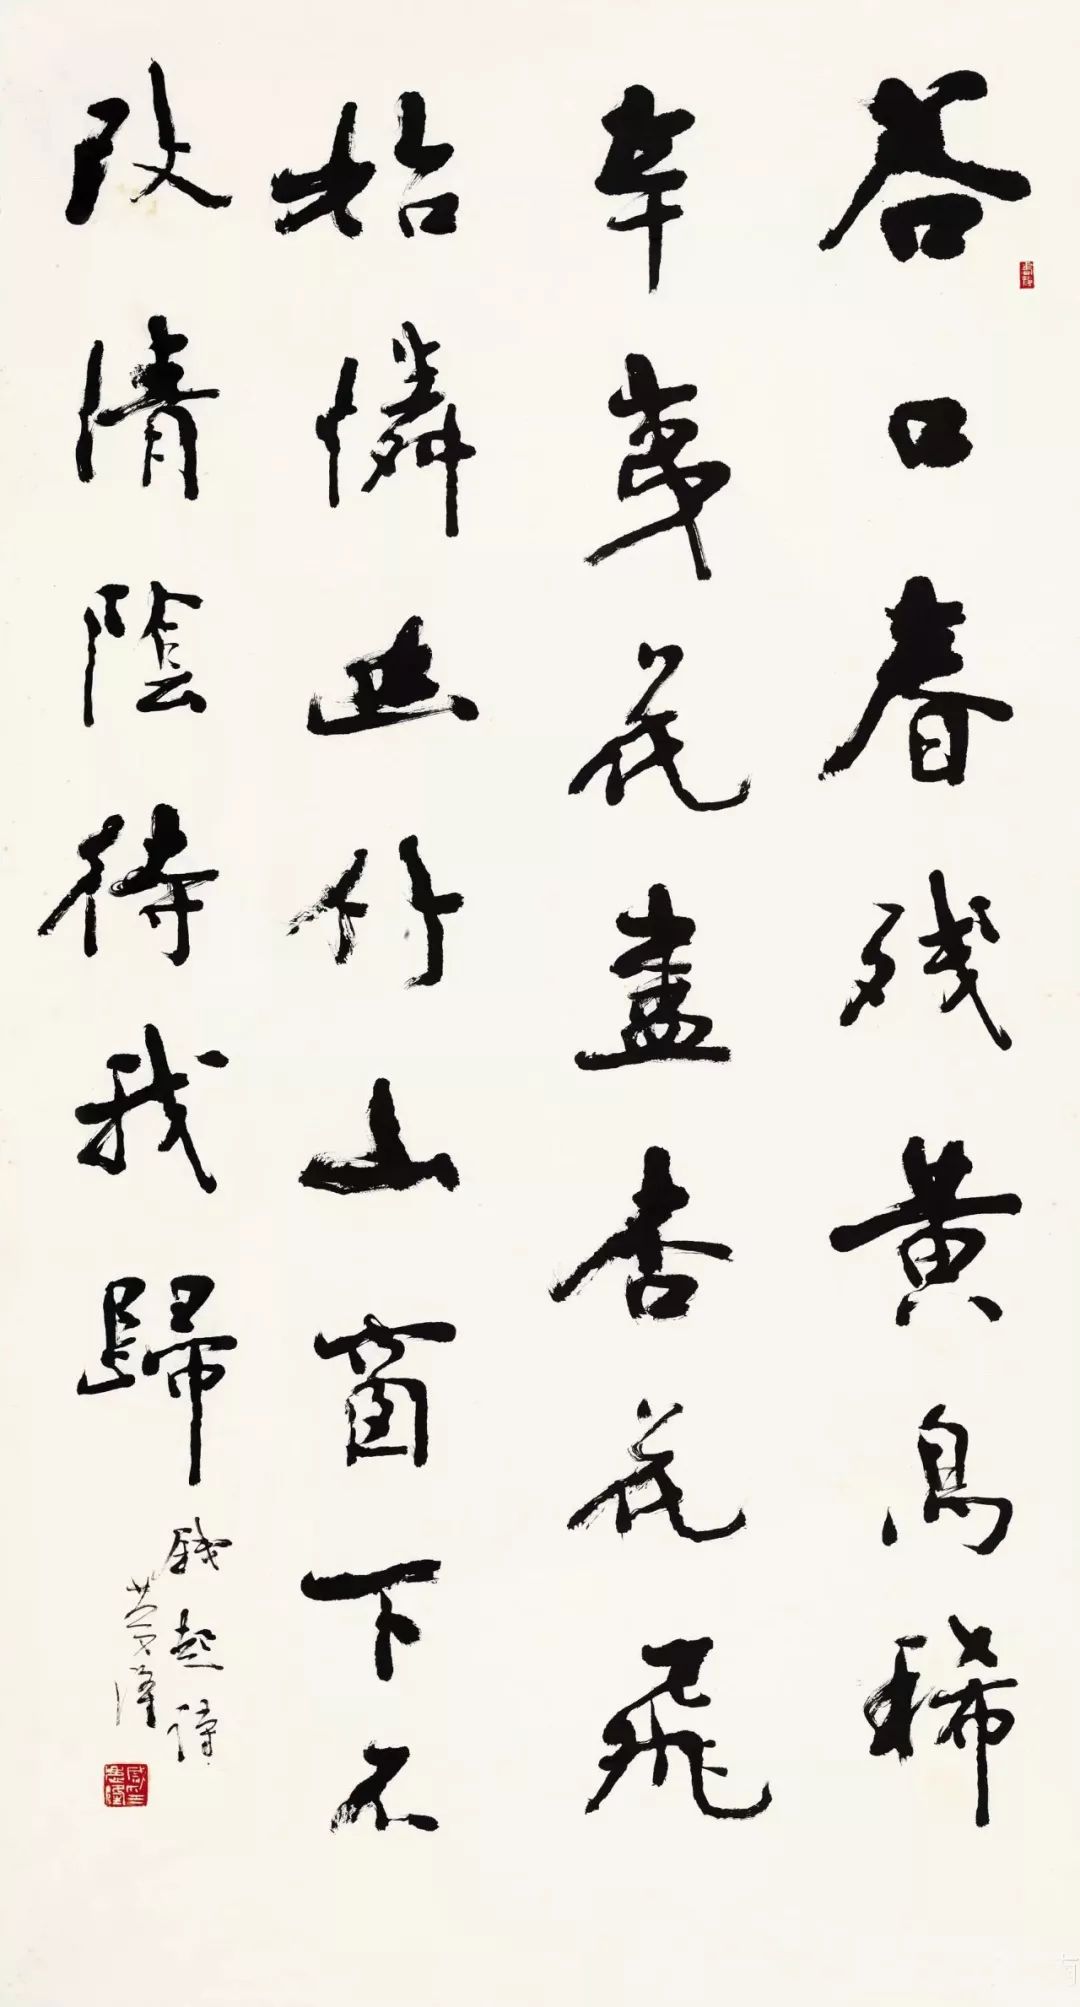 谷口春残黄鳥稀
辛夷花盡杏花飛
始憐幽竹山窗下不
改清陰待我歸
錢起詩